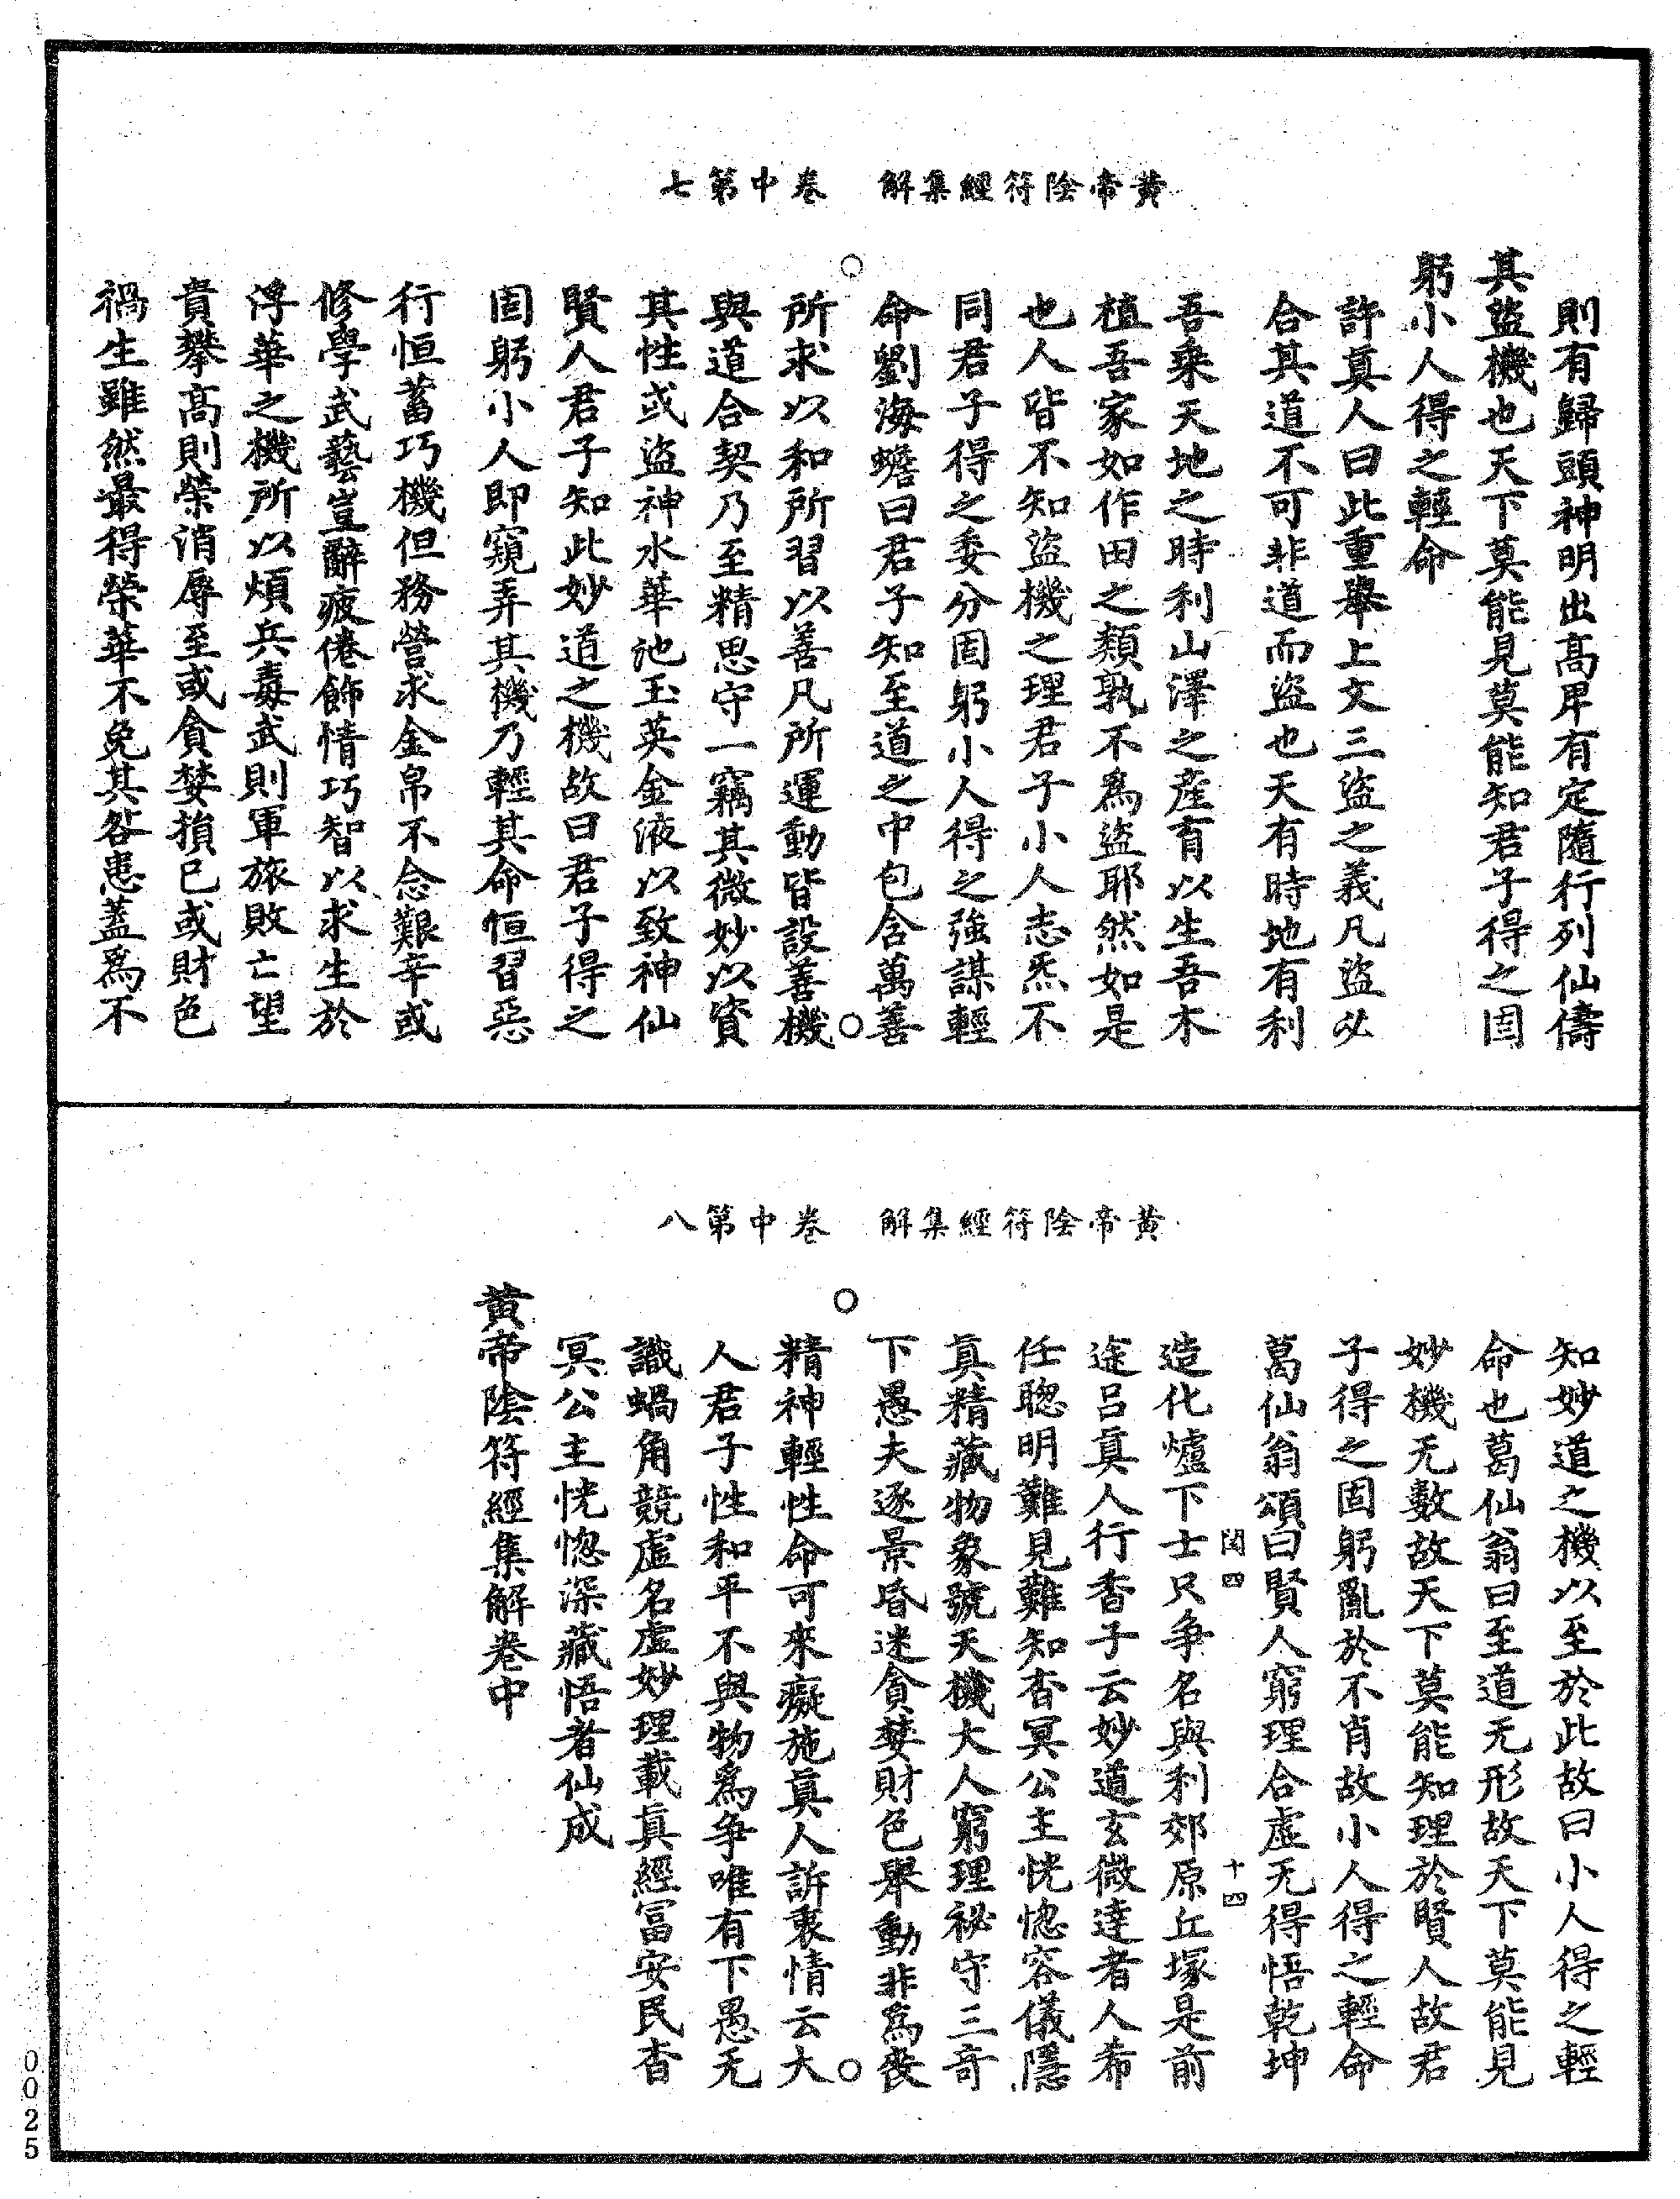 黃帝陰符經集解　卷中第七
則有歸頭神明出高卑有定隨行列仙儔
其盜機也天下莫能見莫能知君子得之固
躬小人得之輕命
許真人曰此重舉上文三盜之義凡盜必
合其道不可非道而盜也天有時地有利
吾乘天地之時利山澤之産育以生吾木
植吾家如作田之類孰不爲盜耶然如是
也人皆不知盜機之理君子小人志炁不
同君子得之委分固躬小人得之強謀輕
命劉海蟾曰君子知至道之中包含萬善
所求以和所習以善凡所運動皆設善機
與道合契乃至精思守一竊其微妙以資
其性或盜神水華池玉英金液以致神仙
賢人君子知此妙道之機故曰君子得之
固躬小人即窺弄其機乃輕其命恒習惡
行恒蓄巧機但務營求金帛不念艱辛或
修學武藝豈辭疲倦飾情巧智以求生於
浮華之機所以煩兵毒武則軍旅敗亡望
貴攀高則榮消辱至或貪婪損己或財色
禍生雖然最得榮華不免其咎患蓋爲不
黃帝陰符經集解　卷中第八
知妙道之機以至於此故曰小人得之輕
命也葛仙翁曰至道无形故天下莫能見
妙機无數故天下莫能知理於賢人故君
子得之固躬亂於不肖故小人得之輕命
葛仙翁頌曰賢人窮理合虛无得悟乾坤
造化爐下士只争名與利郊原丘塚是前
閏四　十四
途呂真人行香子云妙道玄微達者人希
任聦明難見難知杳冥公主恍惚容儀隱
真精藏物象號天機大人窮理祕守三奇
下愚夫逐景昏迷貪婪財色舉動非爲喪
精神輕性命可來癡施真人訴衷情云大
人君子性和平不與物爲争唯有下愚无
識蝸角競虛名虛妙理載真經冨安民杳
冥公主恍惚深藏悟者仙成
黃帝陰符經集解卷中
0025